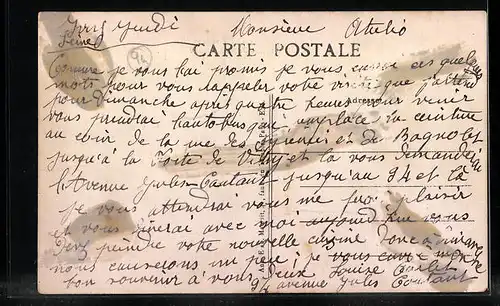 Ivry Jeudi Monsieur Atulio
Seine
94
CARTE POSTALE
Comme je vous l'ai promis je vous envoie ces quelques
mots pour vous rappeler votre visite que j'attend
pour dimanche après quatre heures pour venir
vous prendrai l'autobus qui amplace la ceinture
au coin de la rue des Pyrénées et de Bagnolet
jusqu'à la Porte de Vitry et la vous demanderai
l'Avenue Jules Coutant jusqu'au 94 et là
Je vous attendrai vous me fro plaisir
et vous dinerai avec moi aujourd hui vous
peindre votre nouvelle cuisine donc a dimanche
nous causerons un peu je vous
bon souvenir à vous deux Louise
94 avenue Jules Coutant